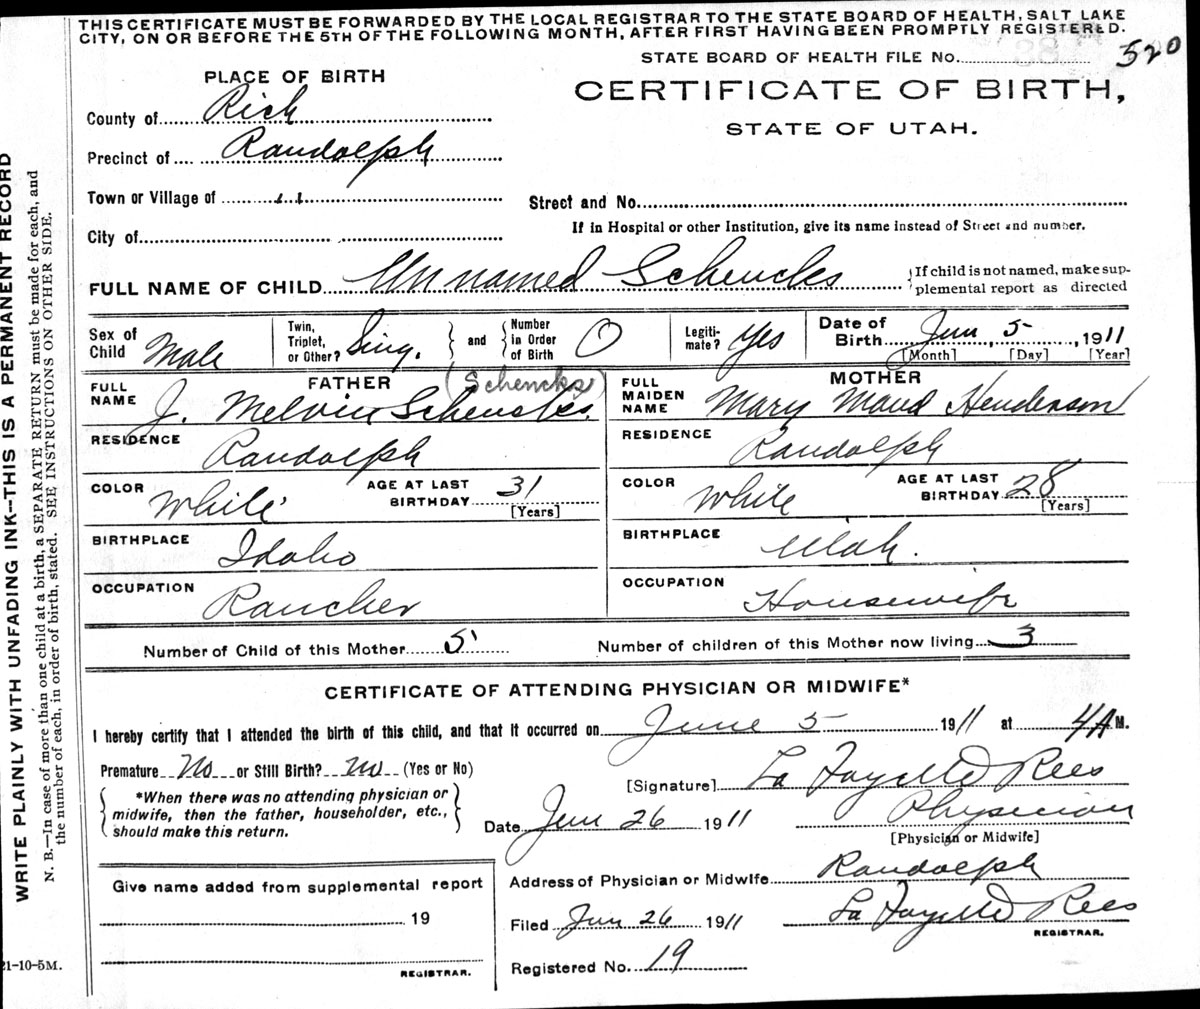 THIS CERTIFICATE MUST BE FORWARDED BY THE LOCAL REGISTRAR TO THE STATE BOARD OF HEALTH, SALT LAKE
CITY, ON OR BEFORE THE 5TH OF THE FOLLOWING MONTH, AFTER FIRST HAVING BEEN PROMPTLY REGISTERED.
STATE BOARD OF HEALTH FILE No. 520
PLACE OF BIRTH
CERTIFICATE OF BIRTH,
STATE OF UTAH.
County of Rich
Precinct of Randolph
Town or Village of " 
Street and No.
City of
If in Hospital or other Institution, give its name instead of Street and number.
FULL NAME OF CHILD Unnamed Schencks
If child is not named, make sup-
plemental report as directed
Sex of Child Male
Twin, Triplet, or Other? Sing. and Number in Order of Birth 0
Legiti-mate? Yes
Date of Birth Jun 5 1911
[Month] [Day] [Year]
FATHER (Schencks)
FULL NAME J. Melvin Schencks.
RESIDENCE Randolph
COLOR White AGE AT LAST BIRTHDAY 31 [Years]
BIRTHPLACE Idaho
OCCUPATION Rancher
MOTHER
FULL MAIDEN NAME Mary Maud Henderson
RESIDENCE Randolph
COLOR White AGE AT LAST BIRTHDAY 28 [Years]
BIRTHPLACE Utah.
OCCUPATION Housewife
Number of Child of this Mother 5 Number of children of this Mother now living 3
CERTIFICATE OF ATTENDING PHYSICIAN OR MIDWIFE*
I hereby certify that I attended the birth of this child, and that it occurred on June 5 1911 at 4 A M.
Premature No or Still Birth? no (Yes or No)
*When there was no attending physician or
midwife, then the father, householder, etc.,
should make this return.
[Signature] La Fayette Rees
Date Jun 26 1911 Physician
[Physician or Midwife]
Give name added from supplemental report
19
REGISTRAR.
Address of Physician or Midwife Randolph
Filed Jun 26 1911 La Fayette Rees
REGISTRAR.
Registered No. 19
21-10-5M.
WRITE PLAINLY WITH UNFADING INK—THIS IS A PERMANENT RECORD
N. B.—In case of more than one child at a birth, a SEPARATE RETURN must be made for each, and
the number of each, in order of birth, stated. SEE INSTRUCTIONS ON OTHER SIDE.